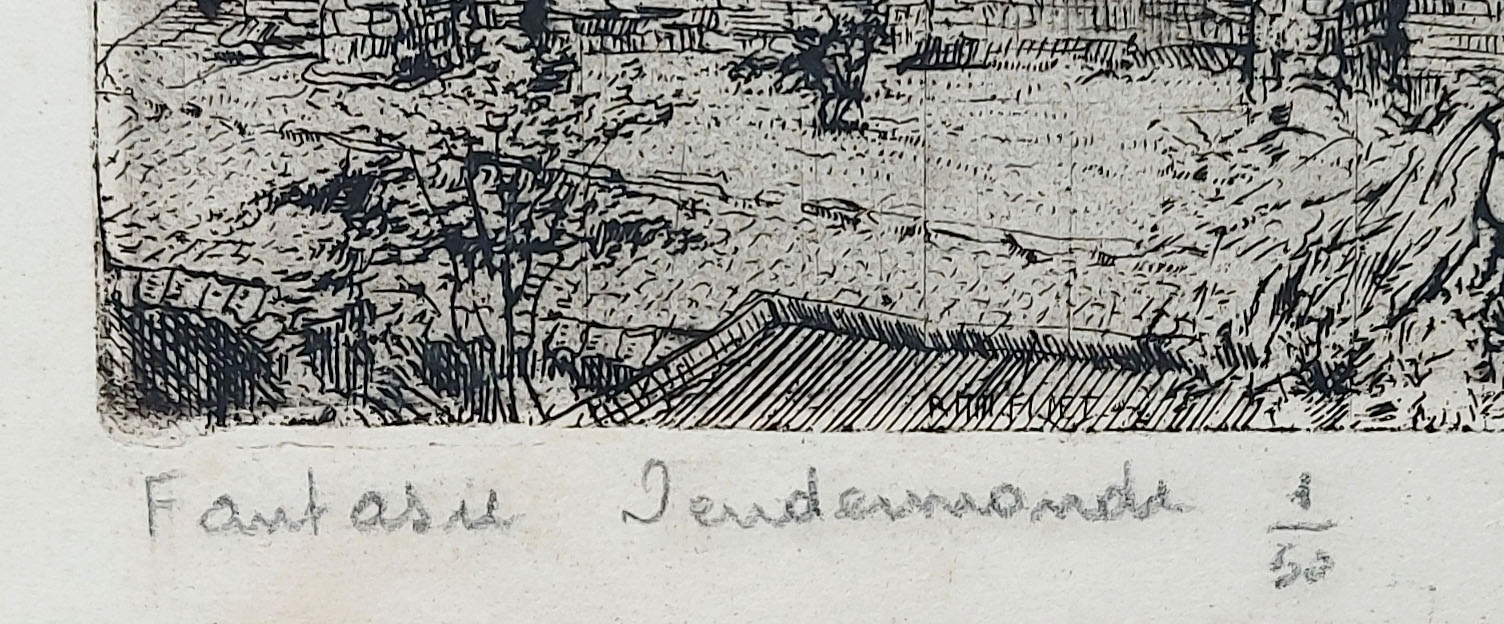 Fantasie Dendermonde 1/50